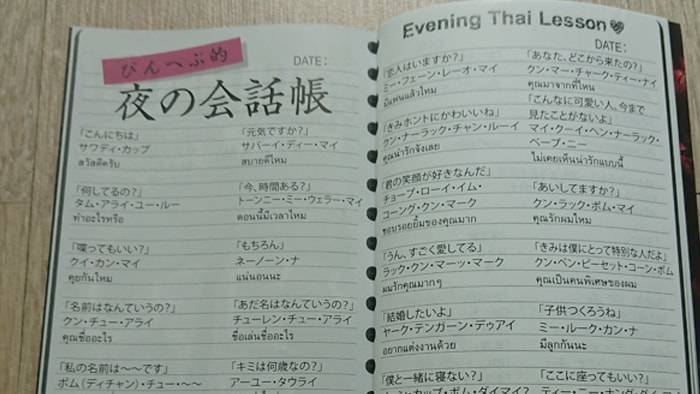 びんべぶ的
DATE:
夜の会話帳
「こんにちは」
サワディ・カップ
สวัสดีครับ
「元気ですか?」
サバーイ・ディー・マイ
สบายดีไหม
「何してるの?」
タム・アライ・ユー・ルー
ทำอะไรหรือ
「今、時間ある?」
トーンニー・ミー・ウェラー・マイ
ตอนนี้มีเวลาไหม
「喋ってもいい?」
クイ・カン・マイ
คุยกันไหม
「もちろん」
ネーノーン・ナ
แน่นอนนะ
「名前はなんていうの?」
クン・チュー・アライ
คุณชื่ออะไร
「あだ名はなんていうの?」
チューレン・チュー・アライ
ชื่อเล่นชื่ออะไร
「私の名前は〜〜です」
ポム(ディチャン)・チュー・〜〜
「キミは何歳なの?」
アーユー・タウライ
Evening Thai Lesson
DATE:
「恋人はいますか?」
ミー・フェーン・レーオ・マイ
มีแฟนแล้วไหม
「あなた、どこから来たの?」
クン・マー・チャーク・ティー・ナイ
คุณมาจากที่ไหน
「きみホントにかわいいね」
クン・ナーラック・チャン・ルーイ
คุณน่ารักจังเลย
「こんなに可愛い人。今まで
見たことがないよ」
マイ・クーイ・ヘン・ナーラック・
ベープ・ニー
ไม่เคยเห็นน่ารักแบบนี้
「君の笑顔が好きなんだ」
チョープ・ローイ・イム・
コーング・クン・マーク
ชอบรอยยิ้มของคุณมาก
「あいしてますか?」
クン・ラック・ポム・マイ
คุณรักผมไหม
「うん、すごく愛してる」
ラック・クン・マーッ・マーク
ผมรักคุณมากๆ
「きみは僕にとって特別な人だよ」
クン・ペン・ピーセット・コーン・ポム
คุณเป็นคนพิเศษของผม
「結婚したいよ」
ヤーク・テンガーン・ドゥアイ
อยากแต่งงานด้วย
「子供つくろうね」
ミー・ルーク・カン・ナ
มีลูกกันนะ
「僕と一緒に寝ない?」
「ここに座ってもいい?」